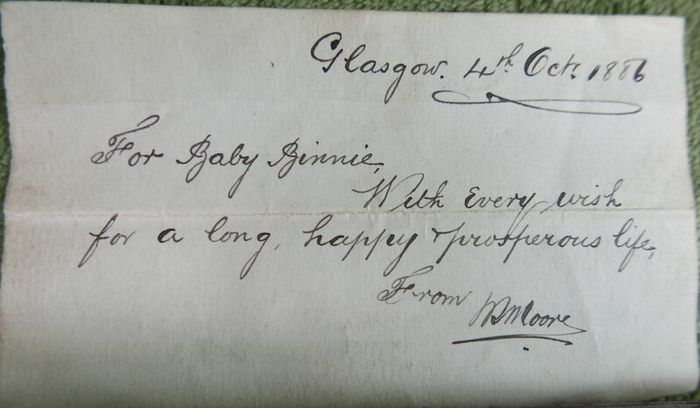 Glasgow. 4th Oct. 1886
For Baby Binnie,
With every wish
for a long, happy & prosperous life,
From
Moore